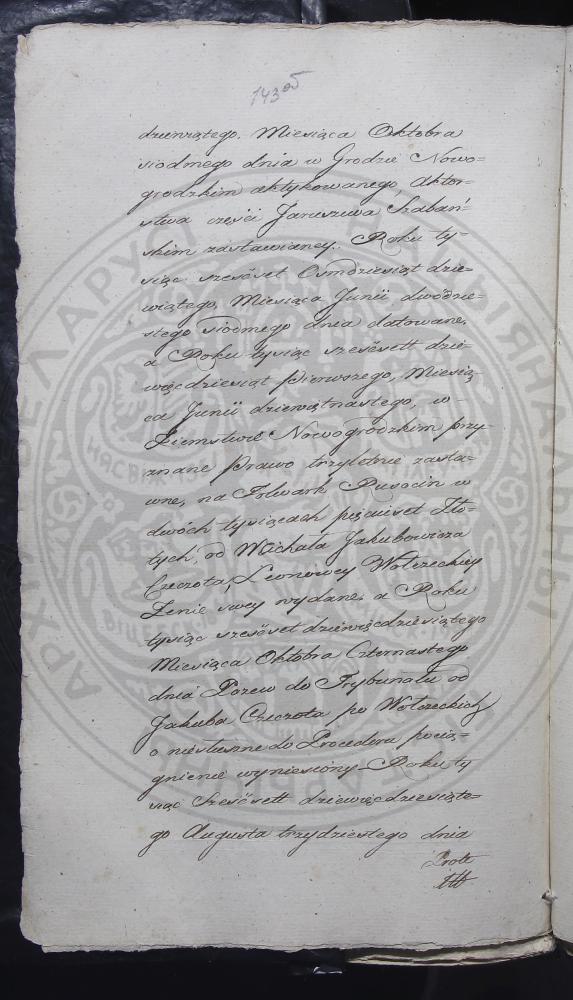 143об
dziewiątego, Miesiąca Oktobra
siodmego dnia w Grodzie Nowo=
grodzkim aktykowanego, Aktor=
stwa części Jaruszewa Szabań=
skim zastawianey. Roku ty=
siąc szescset Osmdziesiąt dzie=
wiątego, Miesiąca Junii dwódzie=
stego siodmego dnia datowane,
a Roku tysiąc szescsett dzie=
więcdziesiąt Pierwszego, Miesią=
ca Junii dziewiątnastego, w=
Ziemstwie Nowogrodzkim przy=
znane Prawo trzyletnie zasta=
wne, na Folwark Rusocin w
dwóch tysiącach pięciuset Zło=
tych, od Michała Jakubowicza
Czeczota, Zewnowey Wołczeckiey
Żenie swey wydane, a Roku
tysiąc szescset dziewięcdziesiątego
Miesiąca Oktobra Czternastego
dnia Pozew do Trybunału od
Jakuba Czeczota po Wołczeckich
o niesłuszne do Procederu pocią=
gnienie wyniesiony Roku ty
siąc Szescsett dziewięcdziesiąte=
go Augusta trzydziestego dnia
Prote